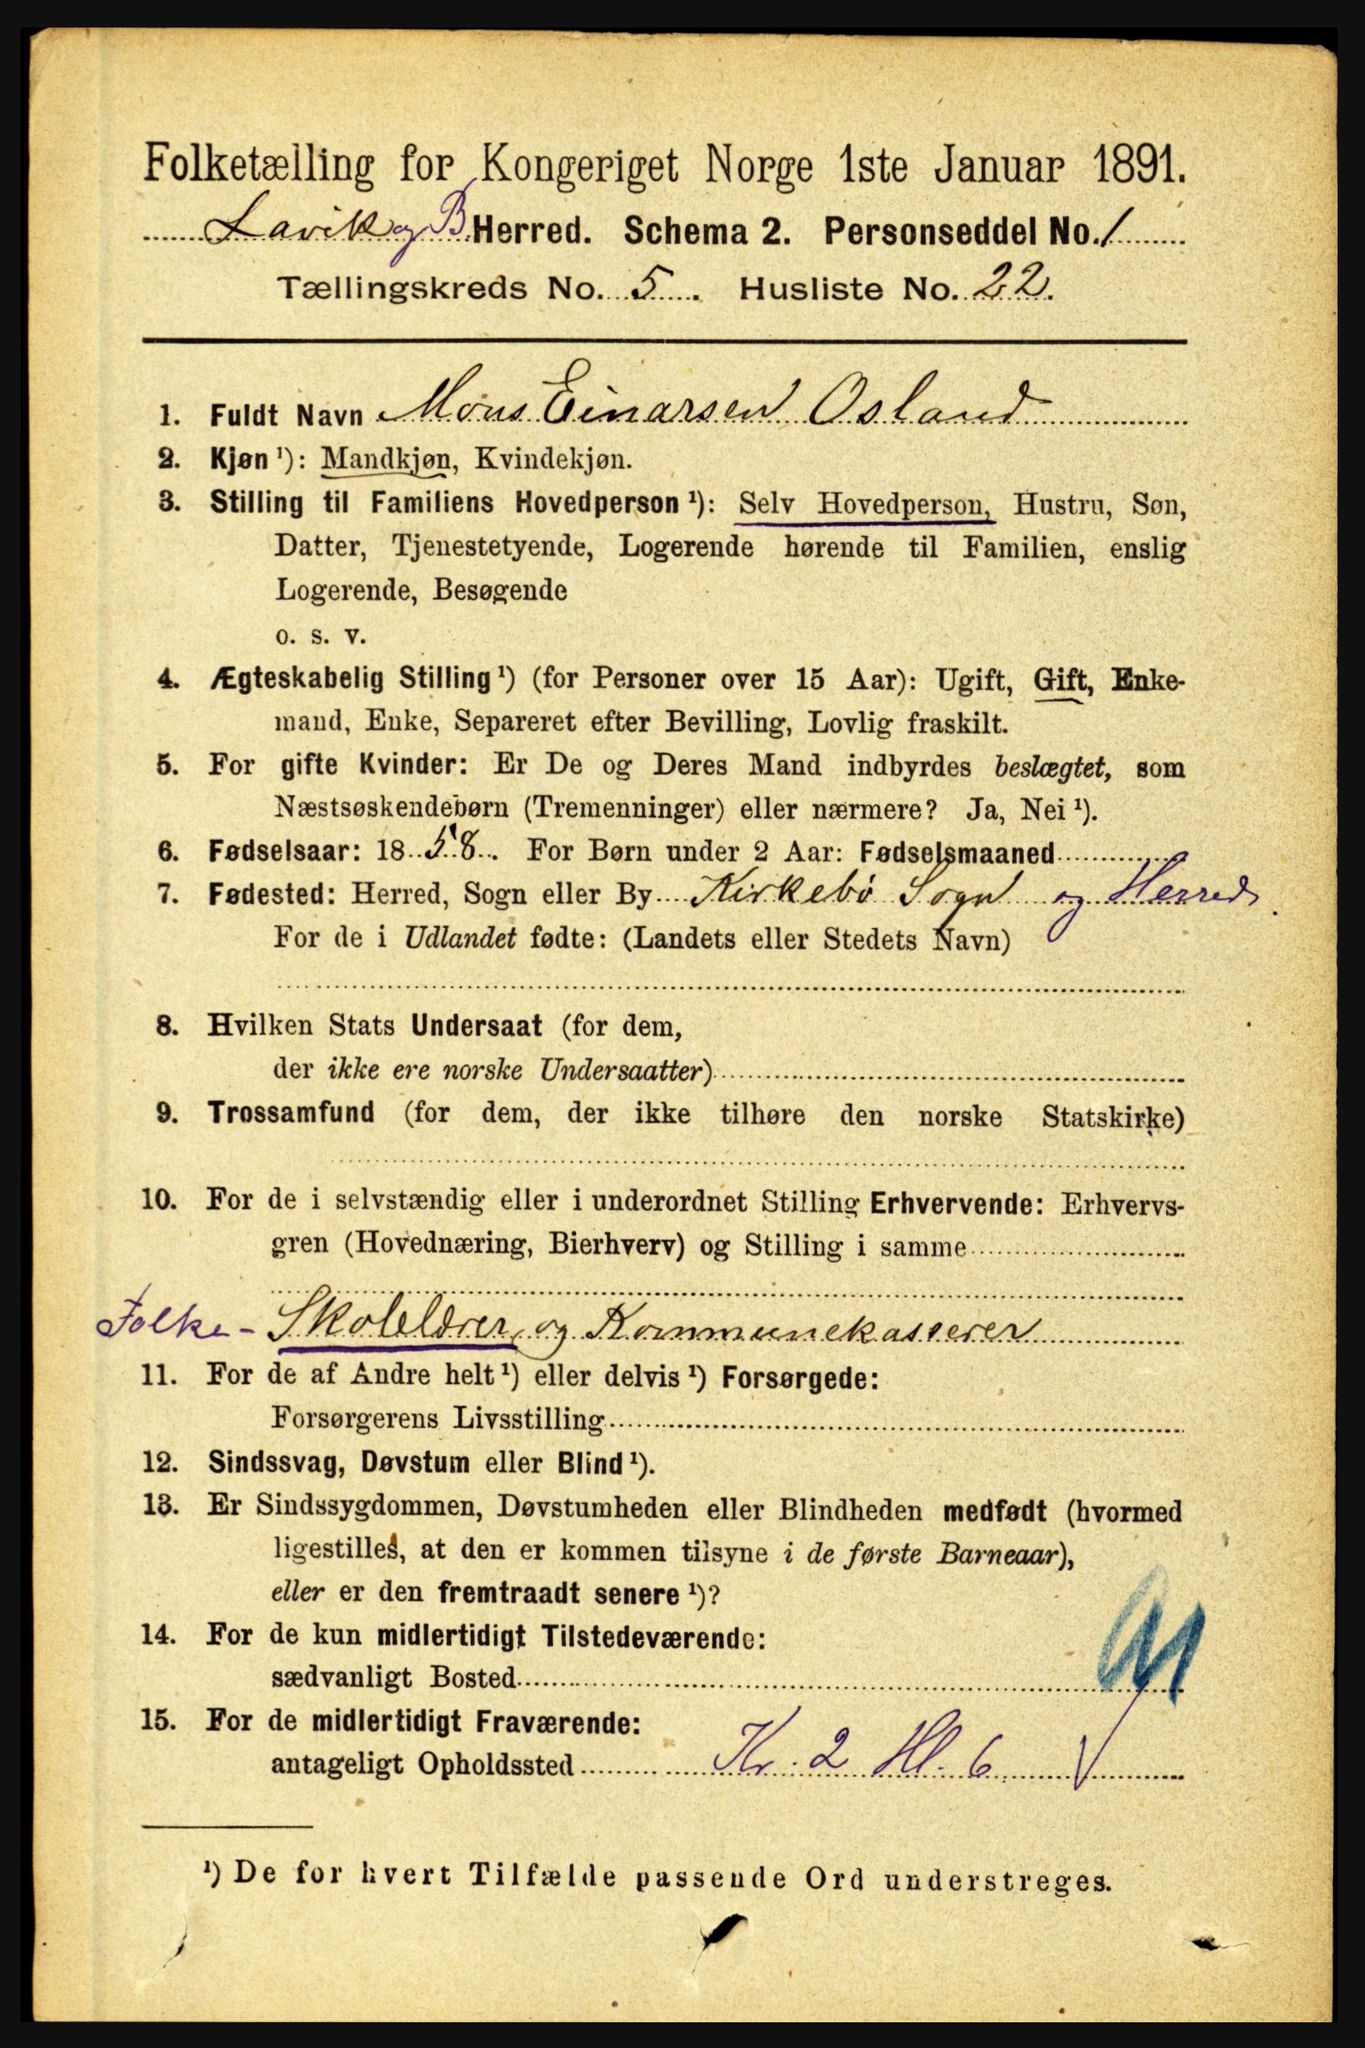 Folketælling for Kongeriget Norge 1ste Januar 1891.
Lavik og B. Herred. Schema 2. Personseddel No. 1
Tællingskreds No. 5. Husliste No. 22.
1. Fuldt Navn Mons Einarsen Osland
2. Kjøn ¹): Mandkjøn, Kvindekjøn.
3. Stilling til Familiens Hovedperson ¹): Selv Hovedperson, Hustru, Søn,
Datter, Tjenestetyende, Logerende hørende til Familien, enslig
Logerende, Besøgende
o. s. v.
4. Ægteskabelig Stilling ¹) (for Personer over 15 Aar): Ugift, Gift, Enke-
mand, Enke, Separeret efter Bevilling, Lovlig fraskilt.
5. For gifte Kvinder: Er De og Deres Mand indbyrdes beslægtet, som
Næstsøskendebørn (Tremenninger) eller nærmere? Ja, Nei ¹).
6. Fødselsaar: 1858. For Børn under 2 Aar: Fødselsmaaned
7. Fødested: Herred, Sogn eller By Kirkebö Sogn og Herred.
For de i Udlandet fødte: (Landets eller Stedets Navn)
8. Hvilken Stats Undersaat (for dem,
der ikke ere norske Undersaatter)
9. Trossamfund (for dem, der ikke tilhøre den norske Statskirke)
10. For de i selvstændig eller i underordnet Stilling Erhvervende: Erhvervs-
gren (Hovednæring, Bierhverv) og Stilling i samme
Folke- Skolelærer, og Kommunekasserer
11. For de af Andre helt ¹) eller delvis ¹) Forsørgede:
Forsørgerens Livsstilling
12. Sindssvag, Døvstum eller Blind ¹).
13. Er Sindssygdommen, Døvstumheden eller Blindheden medfødt (hvormed
ligestilles, at den er kommen tilsyne i de første Barneaar),
eller er den fremtraadt senere ¹)?
14. For de kun midlertidigt Tilstedeværende:
sædvanligt Bosted
15. For de midlertidigt Fraværende:
antageligt Opholdssted Kr. 2 Hl. 6
¹) De for hvert Tilfælde passende Ord understreges.